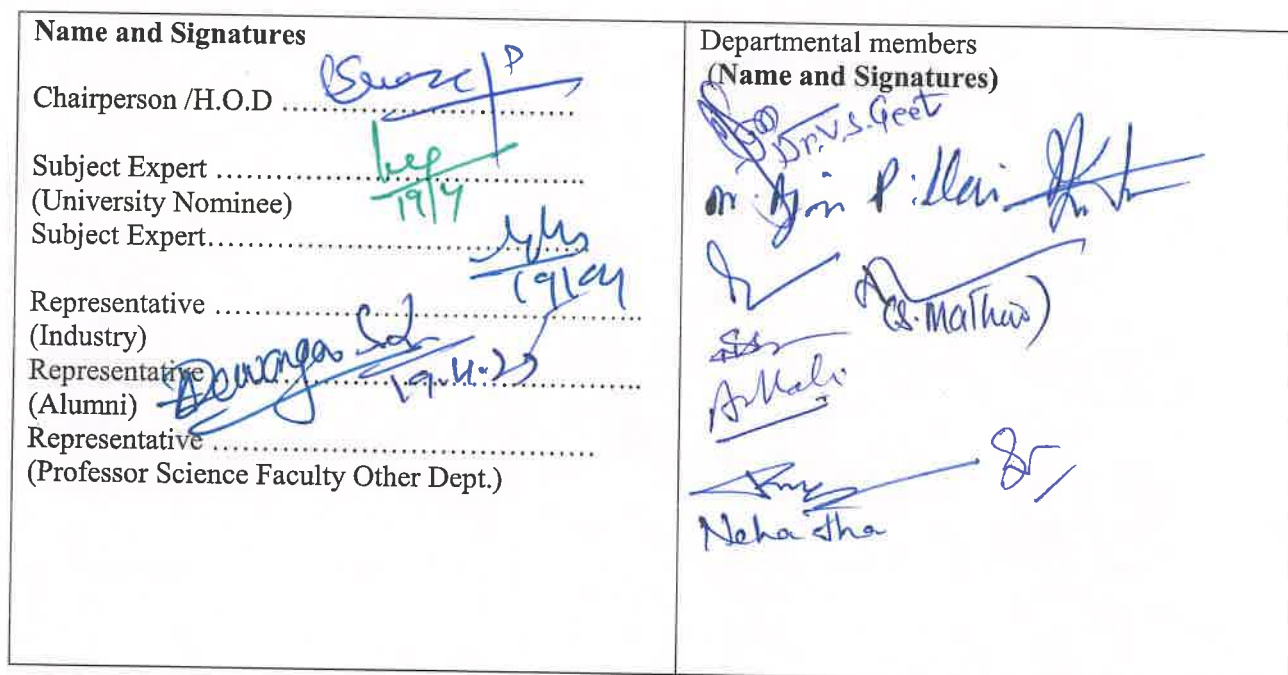 Name and Signatures
Chairperson /H.O.D ....................................
Subject Expert ..............................................
(University Nominee)
19/4
Subject Expert..............................................
19/04
Representative ......................................................
(Industry)
Representative ......................................................
19.4.23
(Alumni)
Representative ................................................
(Professor Science Faculty Other Dept.)
Departmental members
(Name and Signatures)
Dr.V.S.Geet
(S. Mathur)
Neha Jha